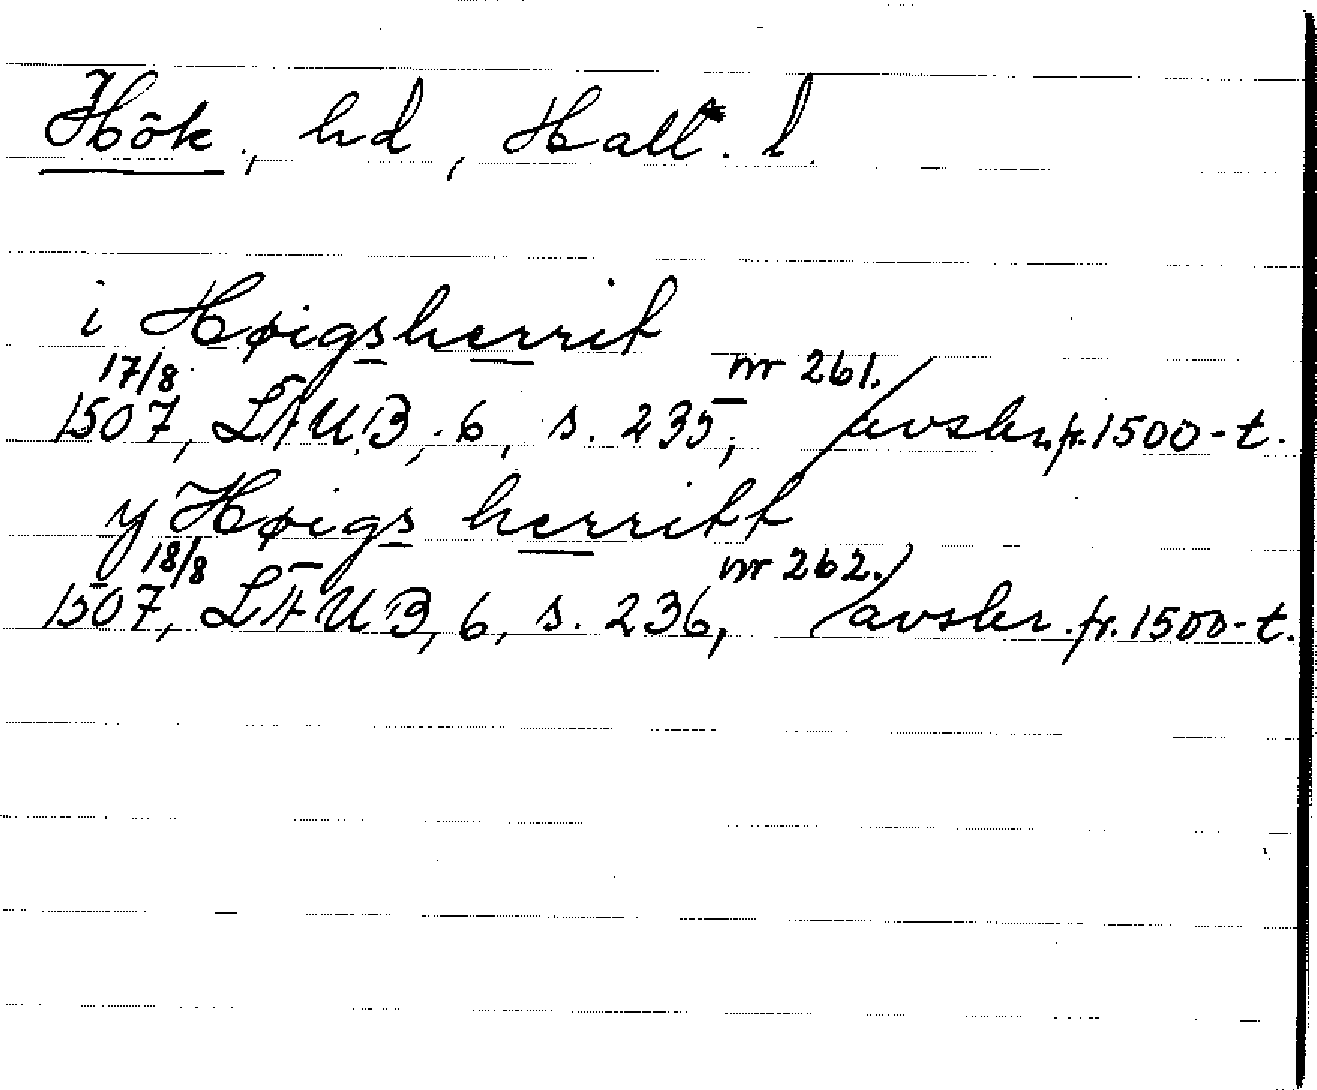 Hök, hd, Hall. l.
i Høigsherrit
17/8 nr 261.
1507, LÄUB, 6, s. 235, avskr. fr. 1500-t.
y Høigs herritt
18/8 nr 262.
1507, LÄUB, 6, s. 236, avskr. fr. 1500-t.